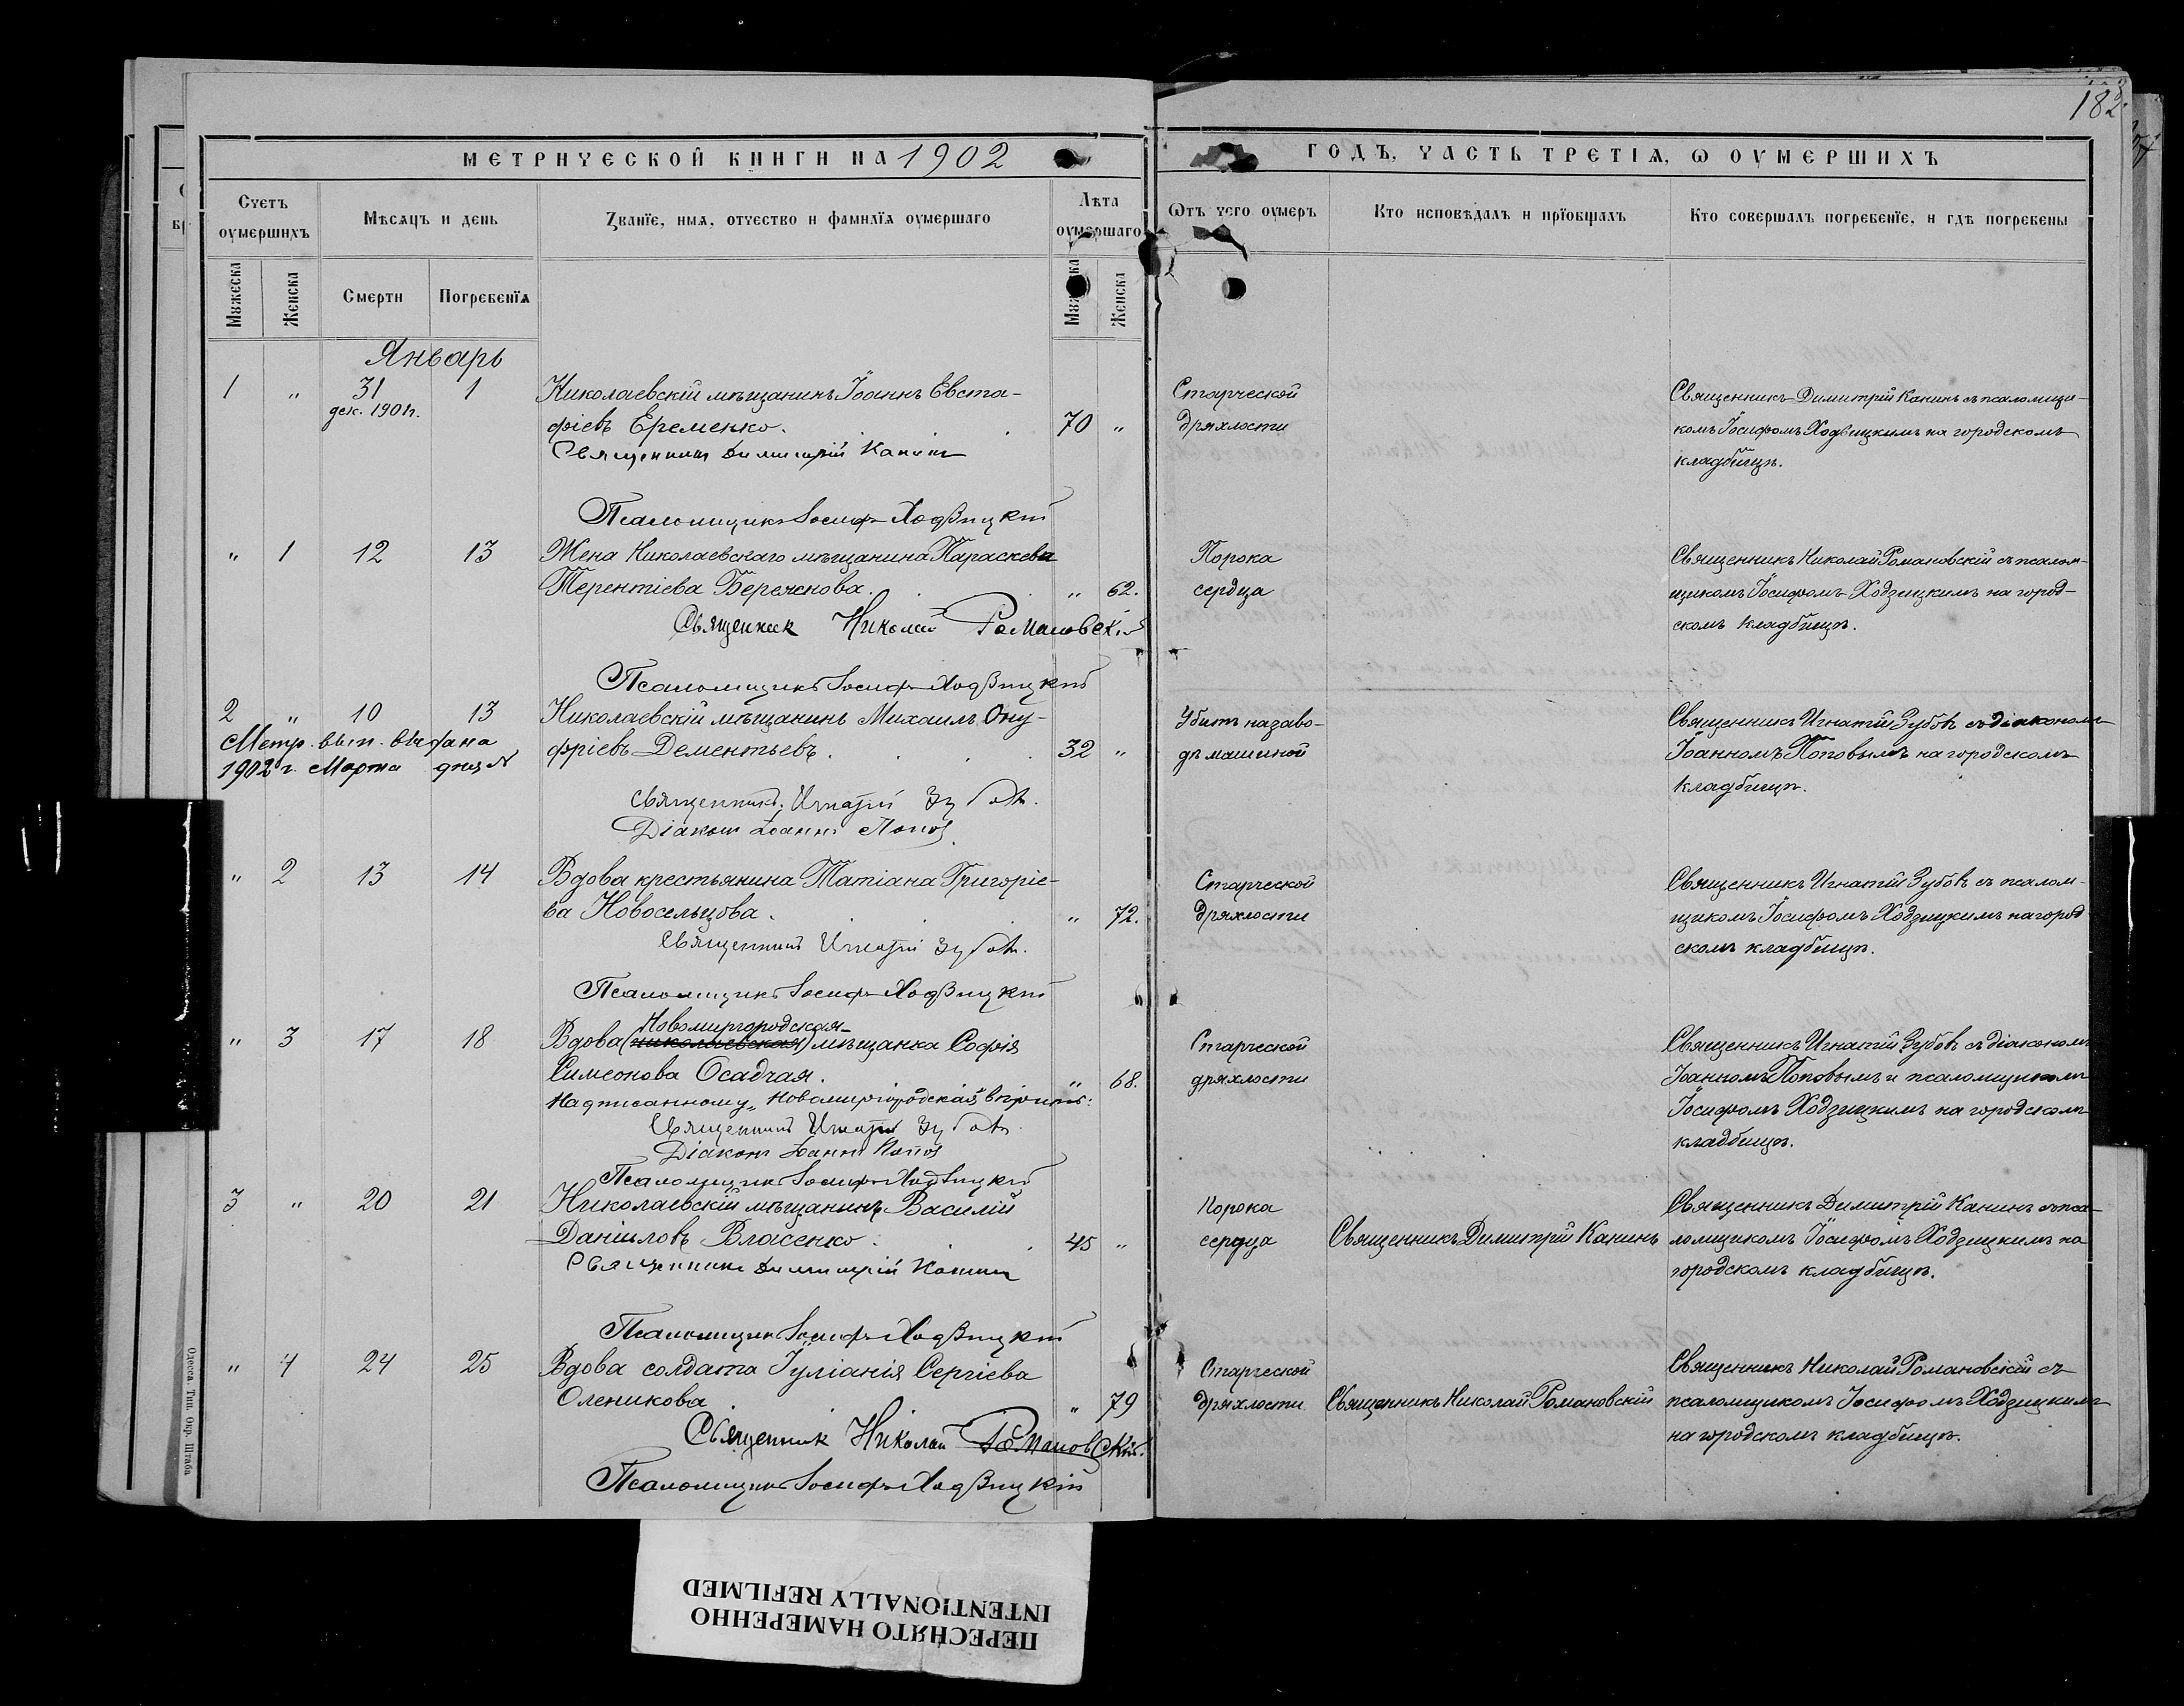 182
МЕТРИЧЕСКОЙ КНИГИ НА 1902
ГОДЪ, ЧАСТЬ ТРЕТІѦ, Ѡ ОУМЕРШИХЪ
Счетъ оумершихъ
Мѣсѧцъ и день
Званїе, имѧ, отчество и фамилїѧ оумершаго
Лѣта оумершаго
Ѿтъ чего оумеръ
Кто исповѣдалъ и прїобщалъ
Кто совершалъ погребенїе, и гдѣ погребены
Мꙋжеска
Женска
Смерти
Погребенїѧ
Женска
Январь
1 " 31 1 Николаевскій мѣщанинъ Іоаннъ Евста-
дек. 1901 г.
фіевъ Еременко. 70 "
Священникъ Димитрій Канинъ
Псаломщикъ Іосифъ Ходзицкій
Старческой
дряхлости
Священникъ Димитрій Канинъ съ псаломщи-
комъ Іосифомъ Ходзицкимъ на городскомъ
кладбищѣ.
" 1 12 13 Жена Николаевскаго мѣщанина Параскева
Терентіева Береженова. " 62.
Священник Николай Романовскій
Псаломщикъ Іосифъ Ходзицкій
Порока
сердца
Священникъ Николай Романовскій съ псалом-
щикомъ Іосифомъ Ходзицкимъ на город-
скомъ кладбищѣ.
2 " 10 13 Николаевскій мѣщанинъ Михаилъ Ону-
фріевъ Дементьевъ. 32 "
Метр. вып. выдана
1902 г. Марта дня №
Священникъ Игнатій Зубовъ.
Діаконъ Іоаннъ Попов
Убитъ на заво-
дѣ машиной
Священникъ Игнатій Зубовъ съ діакономъ
Іоанномъ Поповымъ на городскомъ
кладбищѣ.
" 2 13 14 Вдова крестьянина Татіана Григоріе-
ва Новосельцова. " 72.
Священникъ Игнатій Зубовъ.
Псаломщикъ Іосифъ Ходзицкій
Старческой
дряхлости
Священникъ Игнатій Зубовъ съ псалом-
щикомъ Іосифомъ Ходзицкимъ на город
скомъ кладбищѣ.
Новомиргородская
" 3 17 18 Вдова (николаевская) мѣщанка Софія
Симеонова Осадчая. " 68.
Надписанному "Новомиргородская" вѣрить:
Священникъ Игнатій Зубовъ.
Діаконъ Іоаннъ Попов
Псаломщикъ Іосифъ Ходзицкій
Старческой
дряхлости
Священникъ Игнатій Зубовъ съ діакономъ
Іоанномъ Поповымъ и псаломщикомъ
Іосифомъ Ходзицкимъ на городскомъ
кладбищѣ.
3 " 20 21 Николаевскій мѣщанинъ Василій
Даніиловъ Власенко. 45 "
Священникъ Димитрій Канинъ
Псаломщикъ Іосифъ Ходзицкій
Порока
сердца
Священникъ Димитрій Канинъ
Священникъ Димитрій Канинъ съ пса-
ломщикомъ Іосифомъ Ходзицкимъ на
городскомъ кладбищѣ.
" 4 24 25 Вдова солдата Іуліанія Сергіева
Оленикова " 79
Священник Николай Романовскій.
Псаломщикъ Іосифъ Ходзицкій
Старческой
дряхлости
Священникъ Николай Романовскій
Священникъ Николай Романовскій съ
псаломщикомъ Іосифомъ Ходзицкимъ
на городскомъ кладбищѣ.
Одесса. Тип. Окр. Штаба
ПЕРЕСНЯТО НАМЕРЕННО
INTENTIONALLY REFILMED